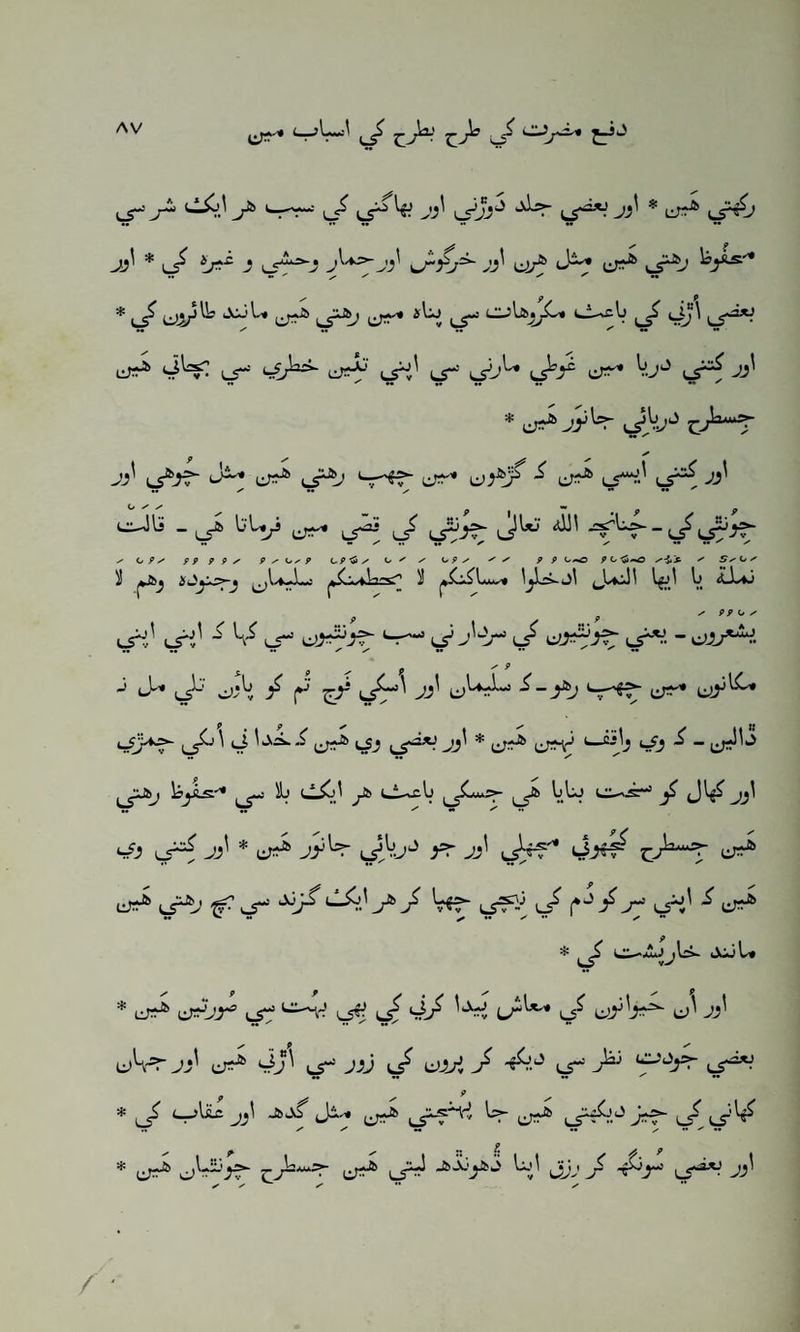 دفع مضرت کي طرح طرح کي اسباب میں ٨٧
رکھي هیں * اور بعضي جلد دوڑني بھاگني کي سبب هر ایک شر سي
محفوظ رهتي هیں مثل هرن اور خرگوش اور حمار وحشي و غیرہ کي * اور
بعضي اُڑني کي باعث مکروهات سي پناہ میں رهتي هیں مانند طایروں کي *
اور کتني دریا میں غوطي مارني سي اپني تئیں خطري سي بچاتي هیں
جسطرح دریائي جانور هیں *
اور کتني ایسي هیں کہ گڑھوں میں چھپ رهتي هیں مثل چوهي اور
چیونٹي کي ـ چنانچہ الله تعالی چیونٹي کي قصي میں فرماتا هي ـ قَالَتْ
نَمْلَةٌ يَا أَيُّهَا النَّمْلُ ادْخُلُوا مَسَاكِنَكُمْ لَا يَحْطِمَنَّكُمْ سُلَيْمَانُ وَجُنُودُهُ وَهُمْ لَا
يَشْعُرُونَ ـ یعني چیونٹیوں کي سردار ني سب چیونٹیوں سي کہا کہ اپني اپني
مکانوں میں چھپ رهو ـ کہ سلیمان اور اُسکي فوج تم کو پانوں تلي مل نہ
ڈالیں ـ کہ وي واقف نہیں هیں * اور بعضي وي هیں کہ خدا ني اُنکي چمڑي
اور کھال کو سخت بنایا هي جسکي باعث هر ایک بلا سي محفوظ رهتي
هیں جسطرح کچھوي مچھلي اور جو دریائي جانور هیں * اور کتني وي
هیں کہ اپني سر کو دم کي نیچي چھپا کر هر ایک گزند سي بچ رهتي هیں
مانند خارپشت کي *
اور اُن حیوانوں کي معاش پیدا کرني کي بھي بہت سي صورتیں هیں *
بعضي جودت نظر سي دیکھہ کر پروں کي زور سي اُڑتي هیں اور جہاں
کھاني کي چیز دیکھتي هیں جا پہنچتي هیں مثل گدھہ اور عقاب کي *
اور بعضي سونگھہ کر رزق اپنا ڈھونڈھہ لیتي هیں جسطرح چیونٹیاں هیں *